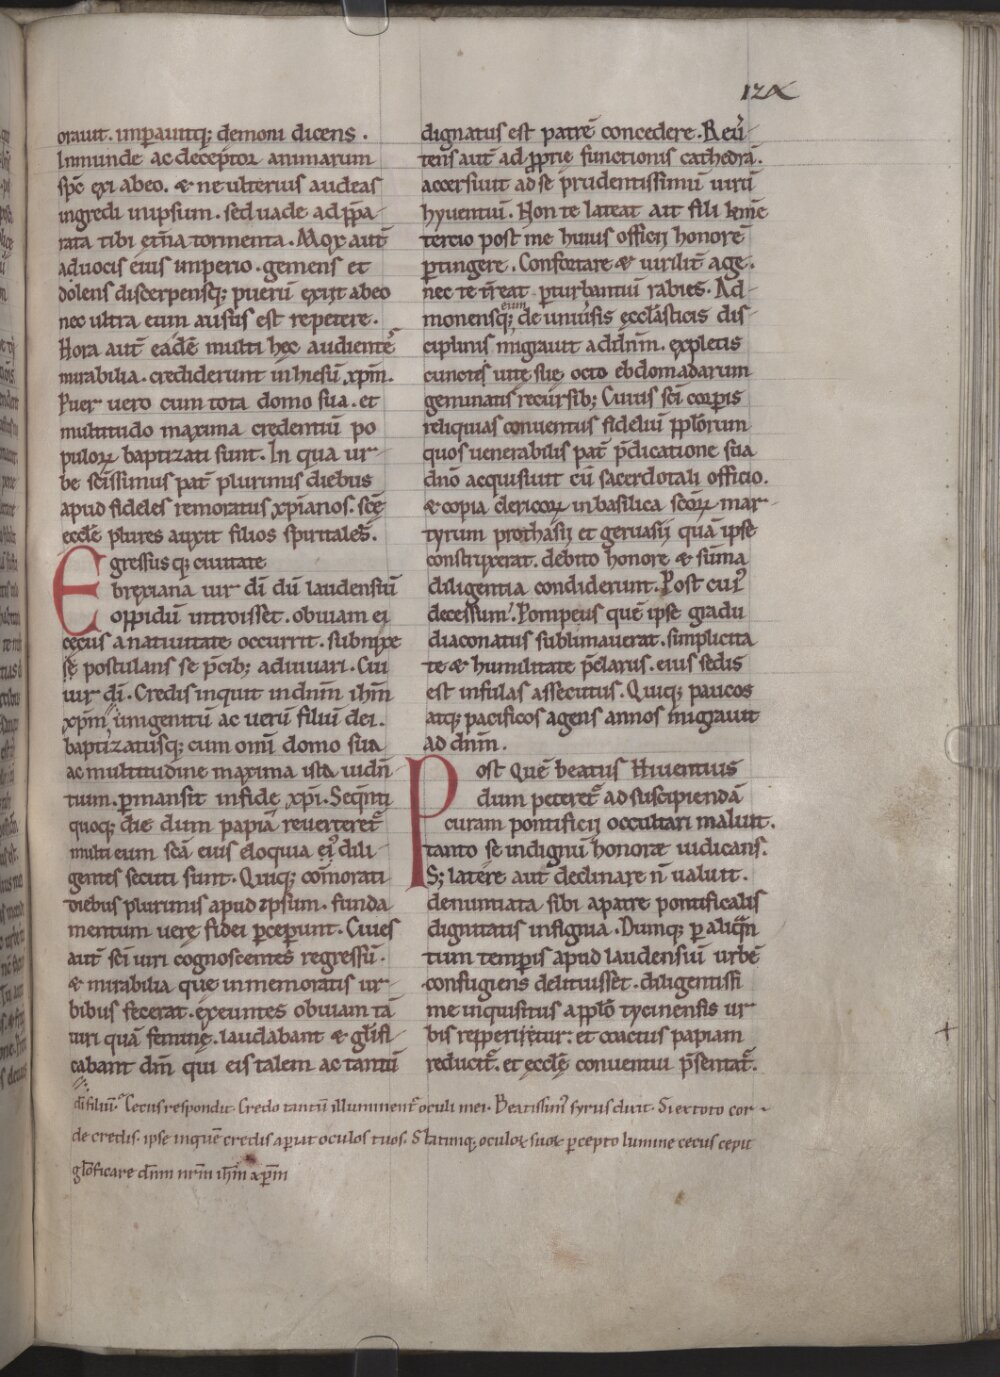 12x
orauit. imꝑauitq; demoni dicens.
Inmunde ac deceptor animarum
spc̄ exi abeo. & ne ulterius audeas
ingredi inipsum. sed uade ad p̄pa-
rata tibi et̄na tormenta. Mox aut̄
aduocis eius imperio. gemens et
dolens discerpensq; puerū exiit abeo
nec ultra eum ausus est repetere.
Hora aut̄ eadē multi hęc audientes
mirabilia. crediderunt in hiesū xp̄m.
Puer uero cum tota domo sua. et
multitudo maxima credentiū po
puloꝝ baptizati sunt. In qua ur-
be sc̄issimus pat̄ plurimis diebus
apud fideles remoratus xp̄ianos. sc̄ę
ęcclē plures auxit filios spiritales.
Egressus q; ciuitate
brexiana uir dī dū laudensiū
oppidū introisset. obuiam ei
cęcus a natiuitate occurrit. subnixe
sę postulans se p̄cib; adiuuari. Cui
uir dī. Credis inquit in dn̄m ih̄m
xp̄m unigenitū ac uerū filiū dei.
baptizatusq; cum omī domo sua
ac multitudine maxima ista uidn̄
tium. ꝑmansit in fide xp̄i. Seqn̄ti
quoq; die dum papiā reuerteret̄
multi eum sc̄ā eius eloquia ei᷒ dili-
gentes secuti sunt. Quiq; com̄orati
diebus plurimis apud ipsum. funda
mentum uerę fidei ꝑceperunt. Ciues
aut̄ sc̄i uiri cognoscentes regressū.
& mirabilia que in memoratis ur-
bibus fecerat. exeuntes obuiam tā
uiri quā feminę. laudabant & gl̄ifi-
cabant dn̄m qui eis talem ac tantū
dignatus est patrē concedere. Reū-
tens aut̄ ad ꝓprie functionis cathedrā.
accersiuit ad se prudentissimū uirū
hyuentiū. Non te lateat ait fili kme
tercio post me huius officij honorē
ꝑtingere. Confortare & uirilit̄ age.
nec te t̄reat ꝑturbantiū rabies. Ad-
monensq; eum de uniūsis ęcclasticis dis-
ciplinis migrauit ad dn̄m. expletis
cunctis uitę suę octo ebdomadarum
geminatis recursib; Cuius sc̄i corpis
reliquias conuentus fideliū ppl̄orum
quos uenerabilis pat̄ p̄dicatione sua
dn̄o acquisiuit cū sacerdotali officio.
& copia clericoꝝ in basilica sc̄oꝝ mar-
tyrum prothasij et geruasij quā ipse
construxerat. debito honore & sūma
diligentia condiderunt. Post cui᷒
decessum. Pompeus quē ipse gradu
diaconatus sublimauerat. simplicita
te & humilitate p̄clarus. eius sedis
est infulas assecutus. Quiq; paucos
atq; pacificos agens annos migrauit
ad dn̄m.
Post quē beatus Hiuentius
dum peteret̄ ad suscipiendā
curam pontificij occultari maluit.
tanto se indignū honore iudicans.
S; latere aut declinare n̄ ualuit.
denuntiata sibi a patre pontificalis
dignitatis insignia. Dumq; ꝑ aliqn̄
tum tempis apud laudensiū urbē
confugiens delituisset. diligentissi
me inquisitus a ppl̄o tycinensis ur
bis repperiretur: et coactus papiam
reducit̄. et ęcclę conuentui p̄sentat̄.
dī filiū. Cecus respondit. Credo tantū illuminent̄ oculi mei. Beatissim᷒ syrus dixit. Si ex toto cor-
de credis. ipse in quē credis aꝑiat oculos tuos. Statimq; oculoꝝ suoꝝ ꝑcepto lumine cecus cepit
glorificare dn̄m nr̄m ih̄m xp̄m